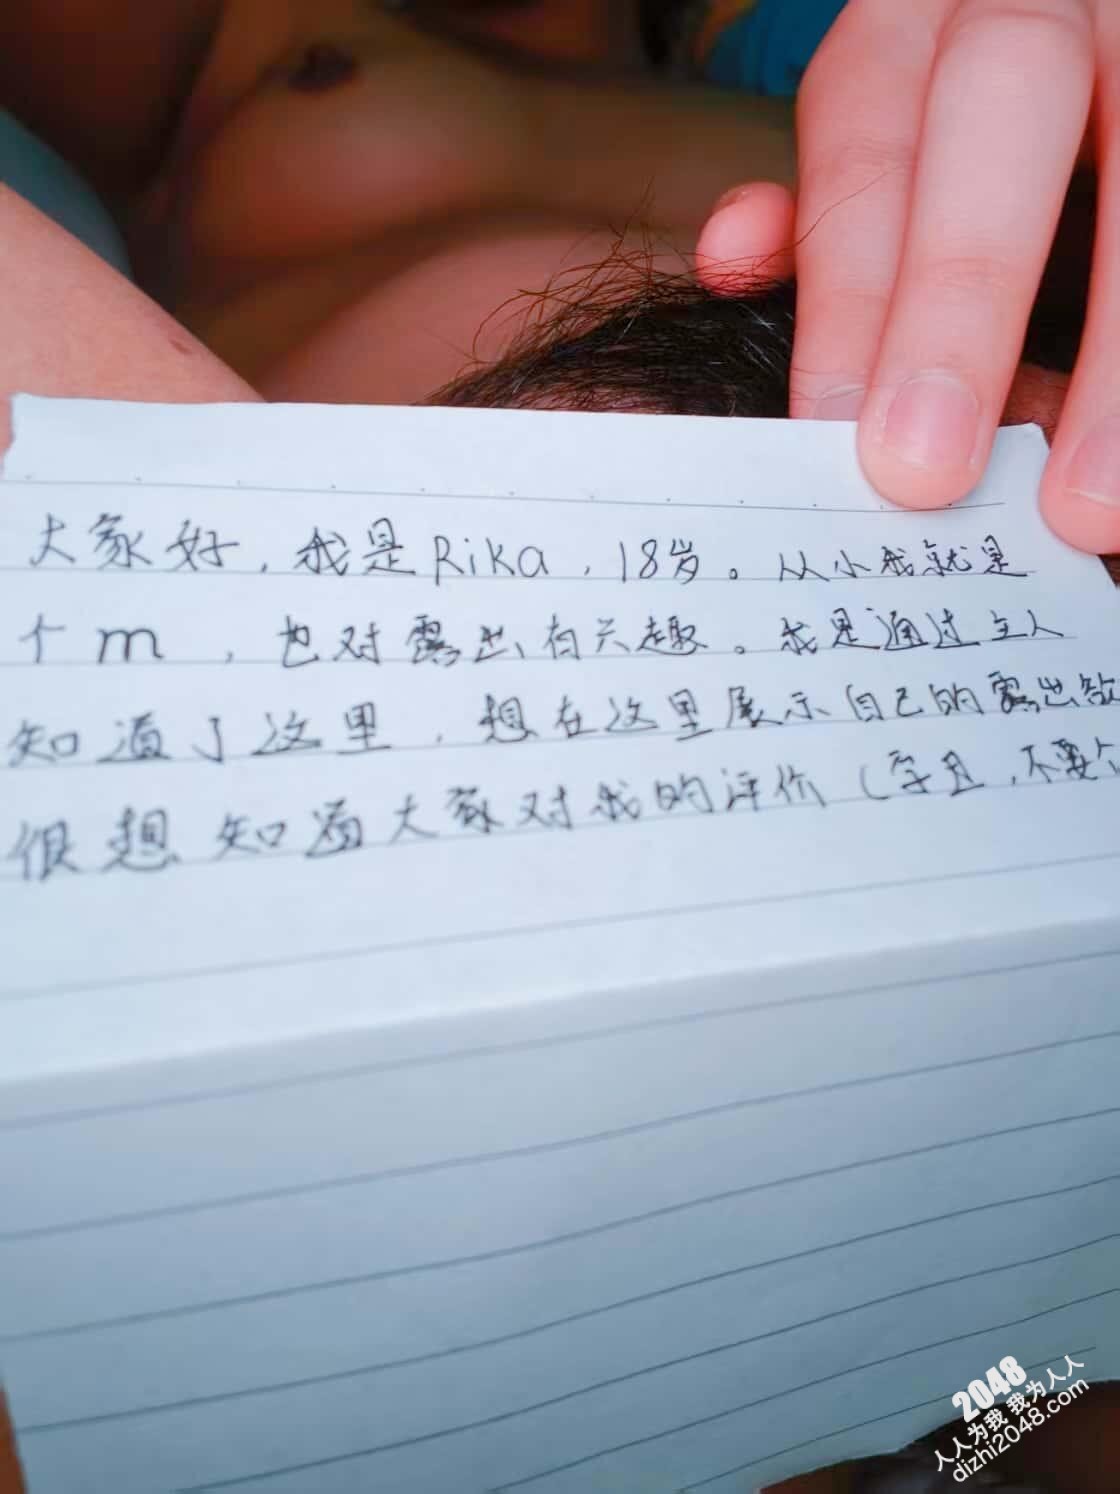 大家好，我是Rika，18岁。从小我就是
个m，也对露出有兴趣。我是通过主人
知道了这里，想在这里展示自己的露出欲
很想知道大家对我的评价（学且，不要个
2048
人人为我 我为人人
dizhi2048.com